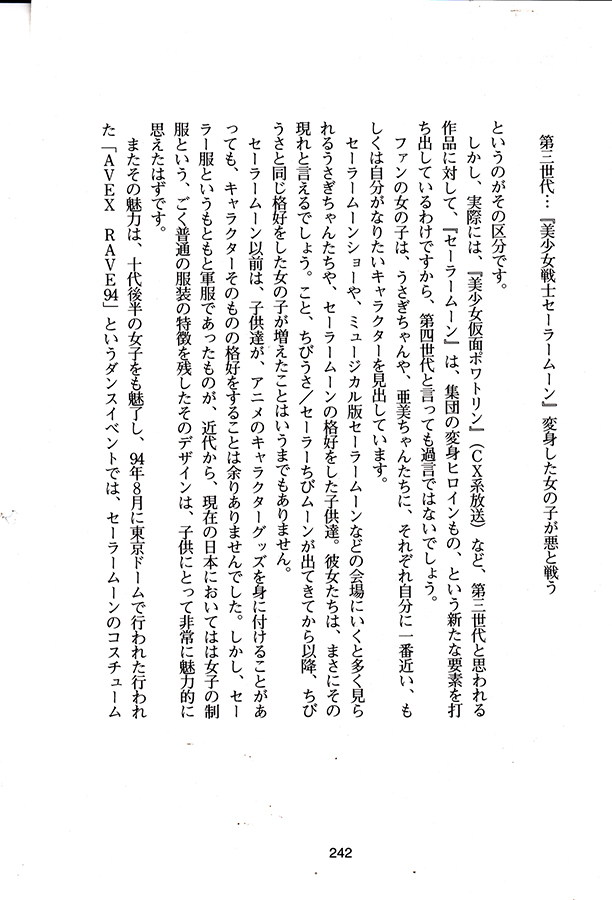 第三世代…『美少女戦士セーラームーン』変身した女の子が悪と戦う
というのがその区分です。
しかし、実際には、『美少女仮面ポワトリン』（ＣＸ系放送）など、第三世代と思われる
作品に対して、『セーラームーン』は、集団の変身ヒロインもの、という新たな要素を打
ち出しているわけですから、第四世代と言っても過言ではないでしょう。
ファンの女の子は、うさぎちゃんや、亜美ちゃんたちに、それぞれ自分に一番近い、も
しくは自分がなりたいキャラクターを見出しています。
セーラームーンショーや、ミュージカル版セーラームーンなどの会場にいくと多く見ら
れるうさぎちゃんたちや、セーラームーンの格好をした子供達。彼女たちは、まさにその
現れと言えるでしょう。こと、ちびうさ／セーラーちびムーンが出てきてから以降、ちび
うさと同じ格好をした女の子が増えたことはいうまでもありません。
セーラームーン以前は、子供達が、アニメのキャラクターグッズを身に付けることがあ
っても、キャラクターそのものの格好をすることは余りありませんでした。しかし、セー
ラー服というもともと軍服であったものが、近代から、現在の日本においてはは女子の制
服という、ごく普通の服装の特徴を残したそのデザインは、子供にとって非常に魅力的に
思えたはずです。
またその魅力は、十代後半の女子をも魅了し、94年８月に東京ドームで行われた行われ
た「ＡＶＥＸ　ＲＡＶＥ94」というダンスイベントでは、セーラームーンのコスチューム
242